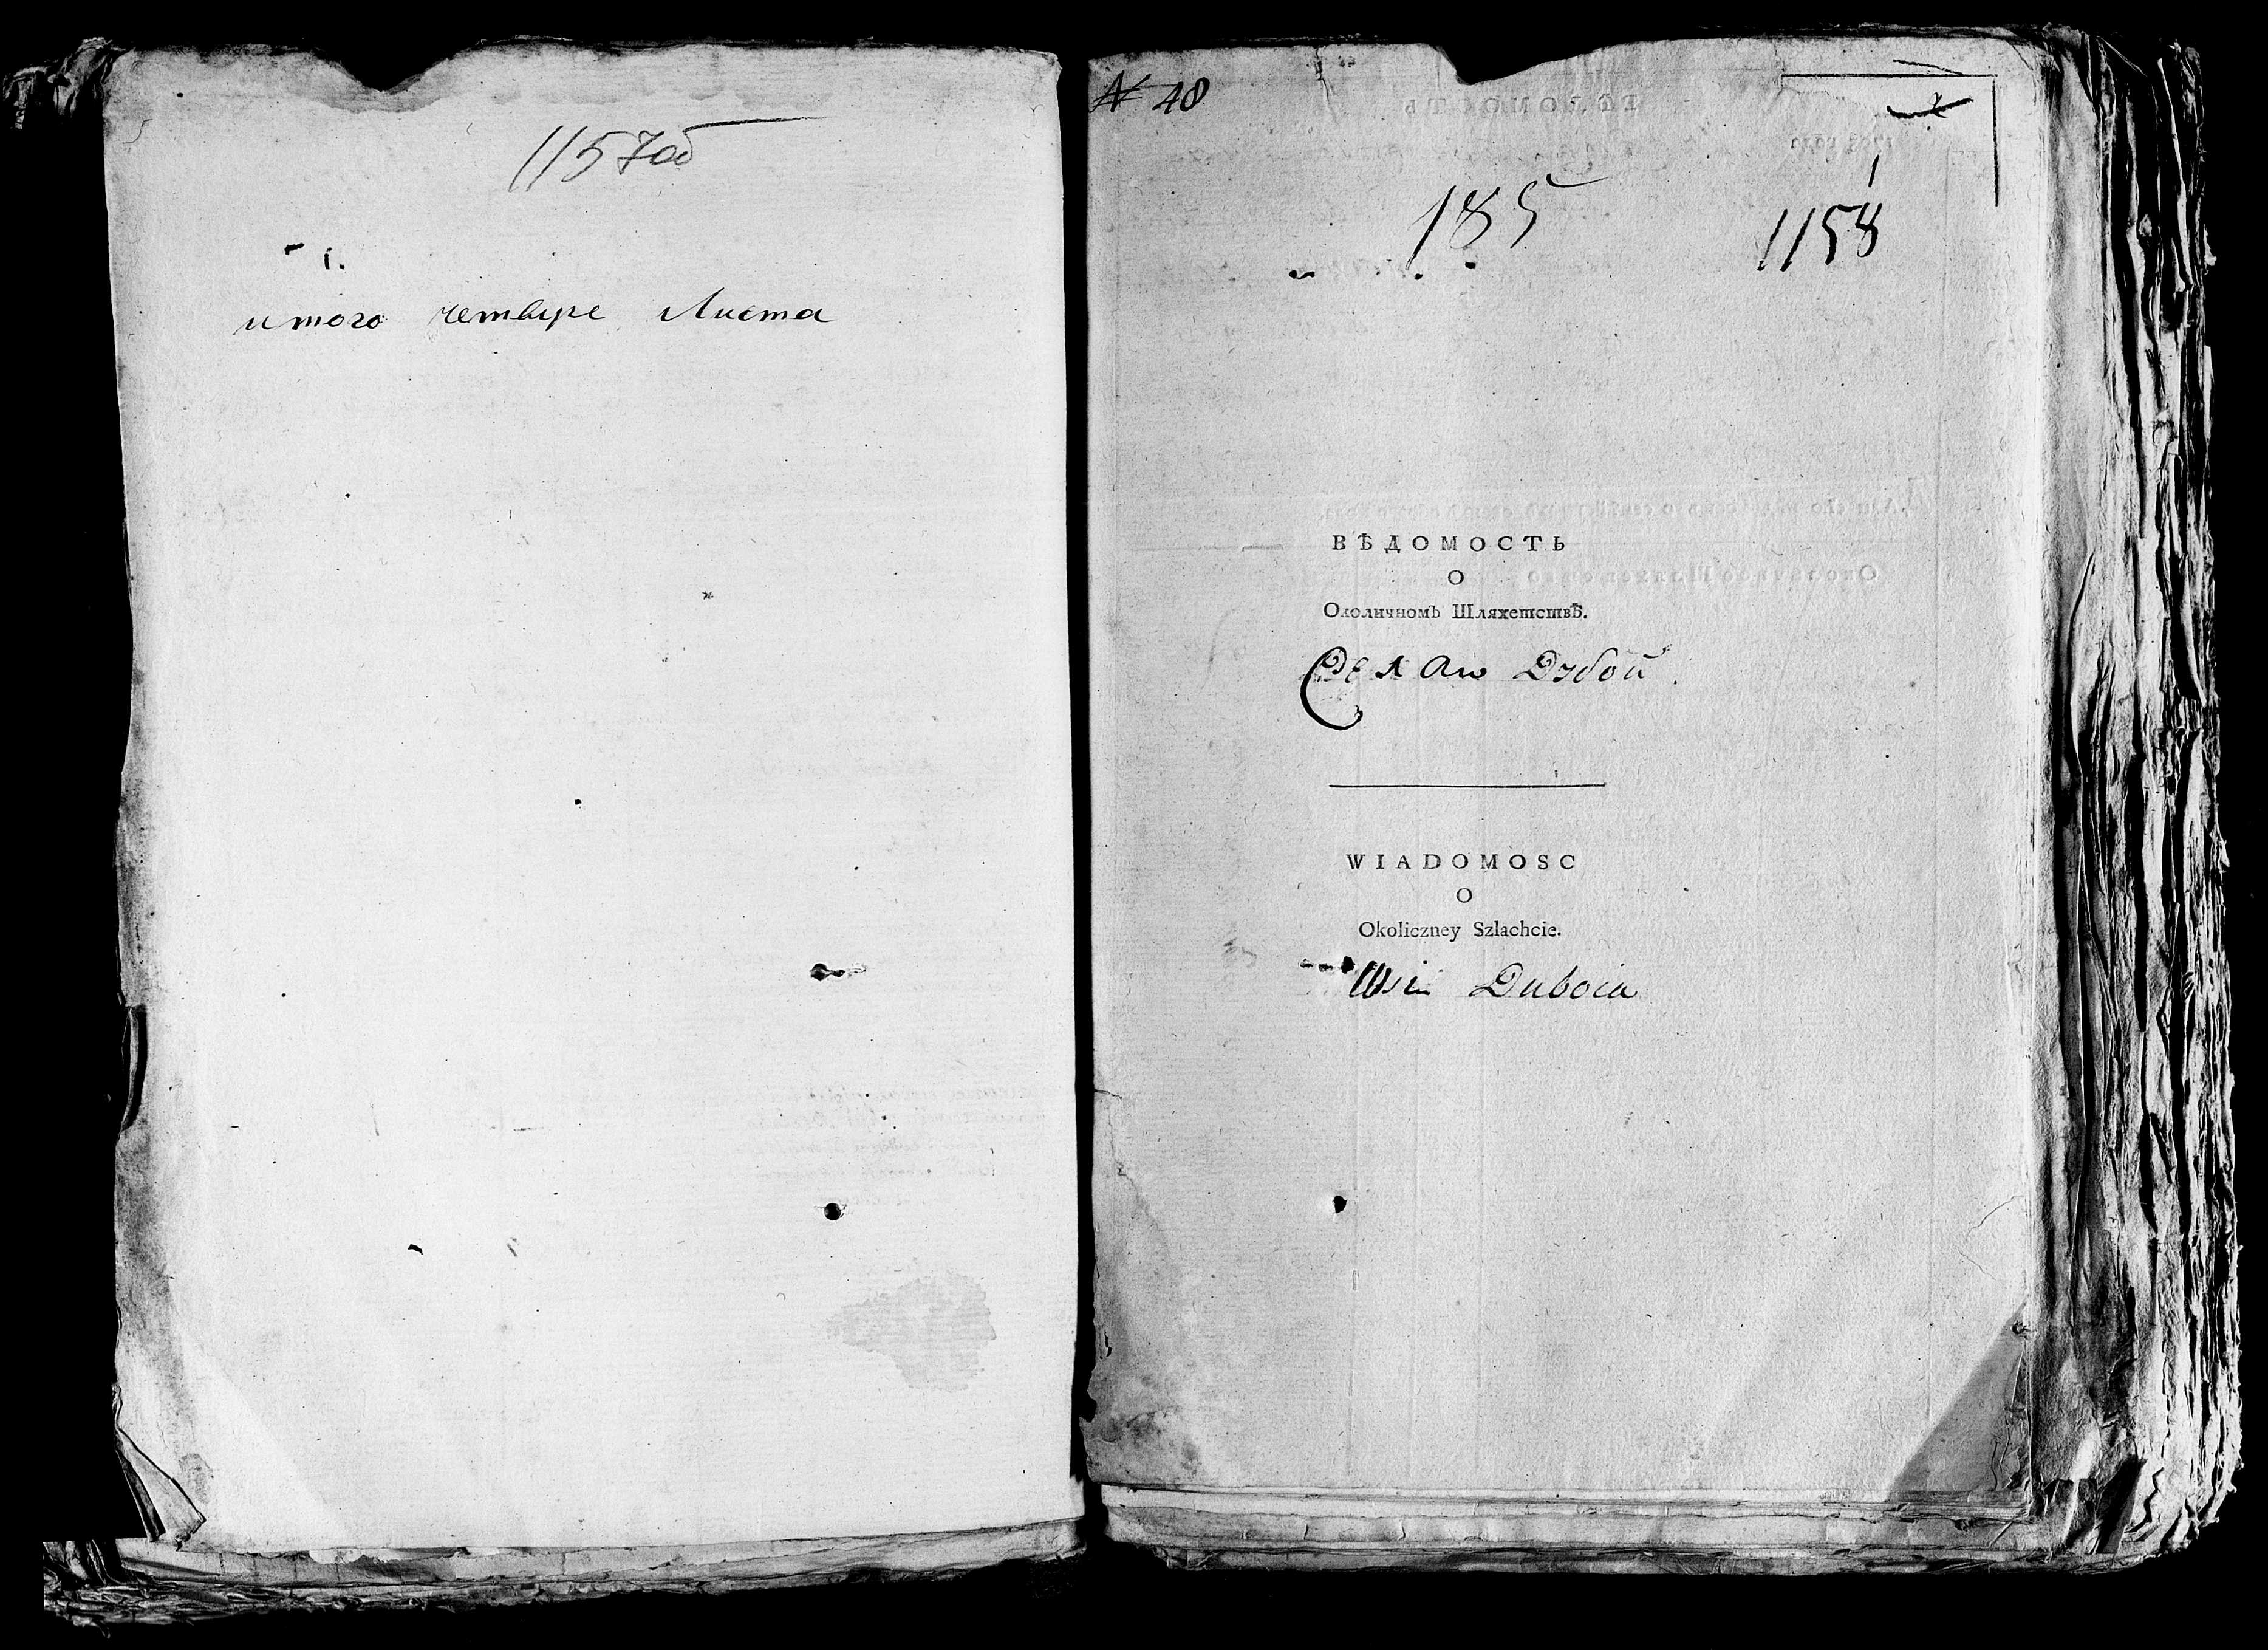 1157об
итого четыре Листа
№ 48
185
1158
ВѢДОМОСТЬ
О
Околичномъ Шляхетствѣ.
Села Дубой
WIADOMOSC
O
Okoliczney Szlachcie.
Wsi Duboia